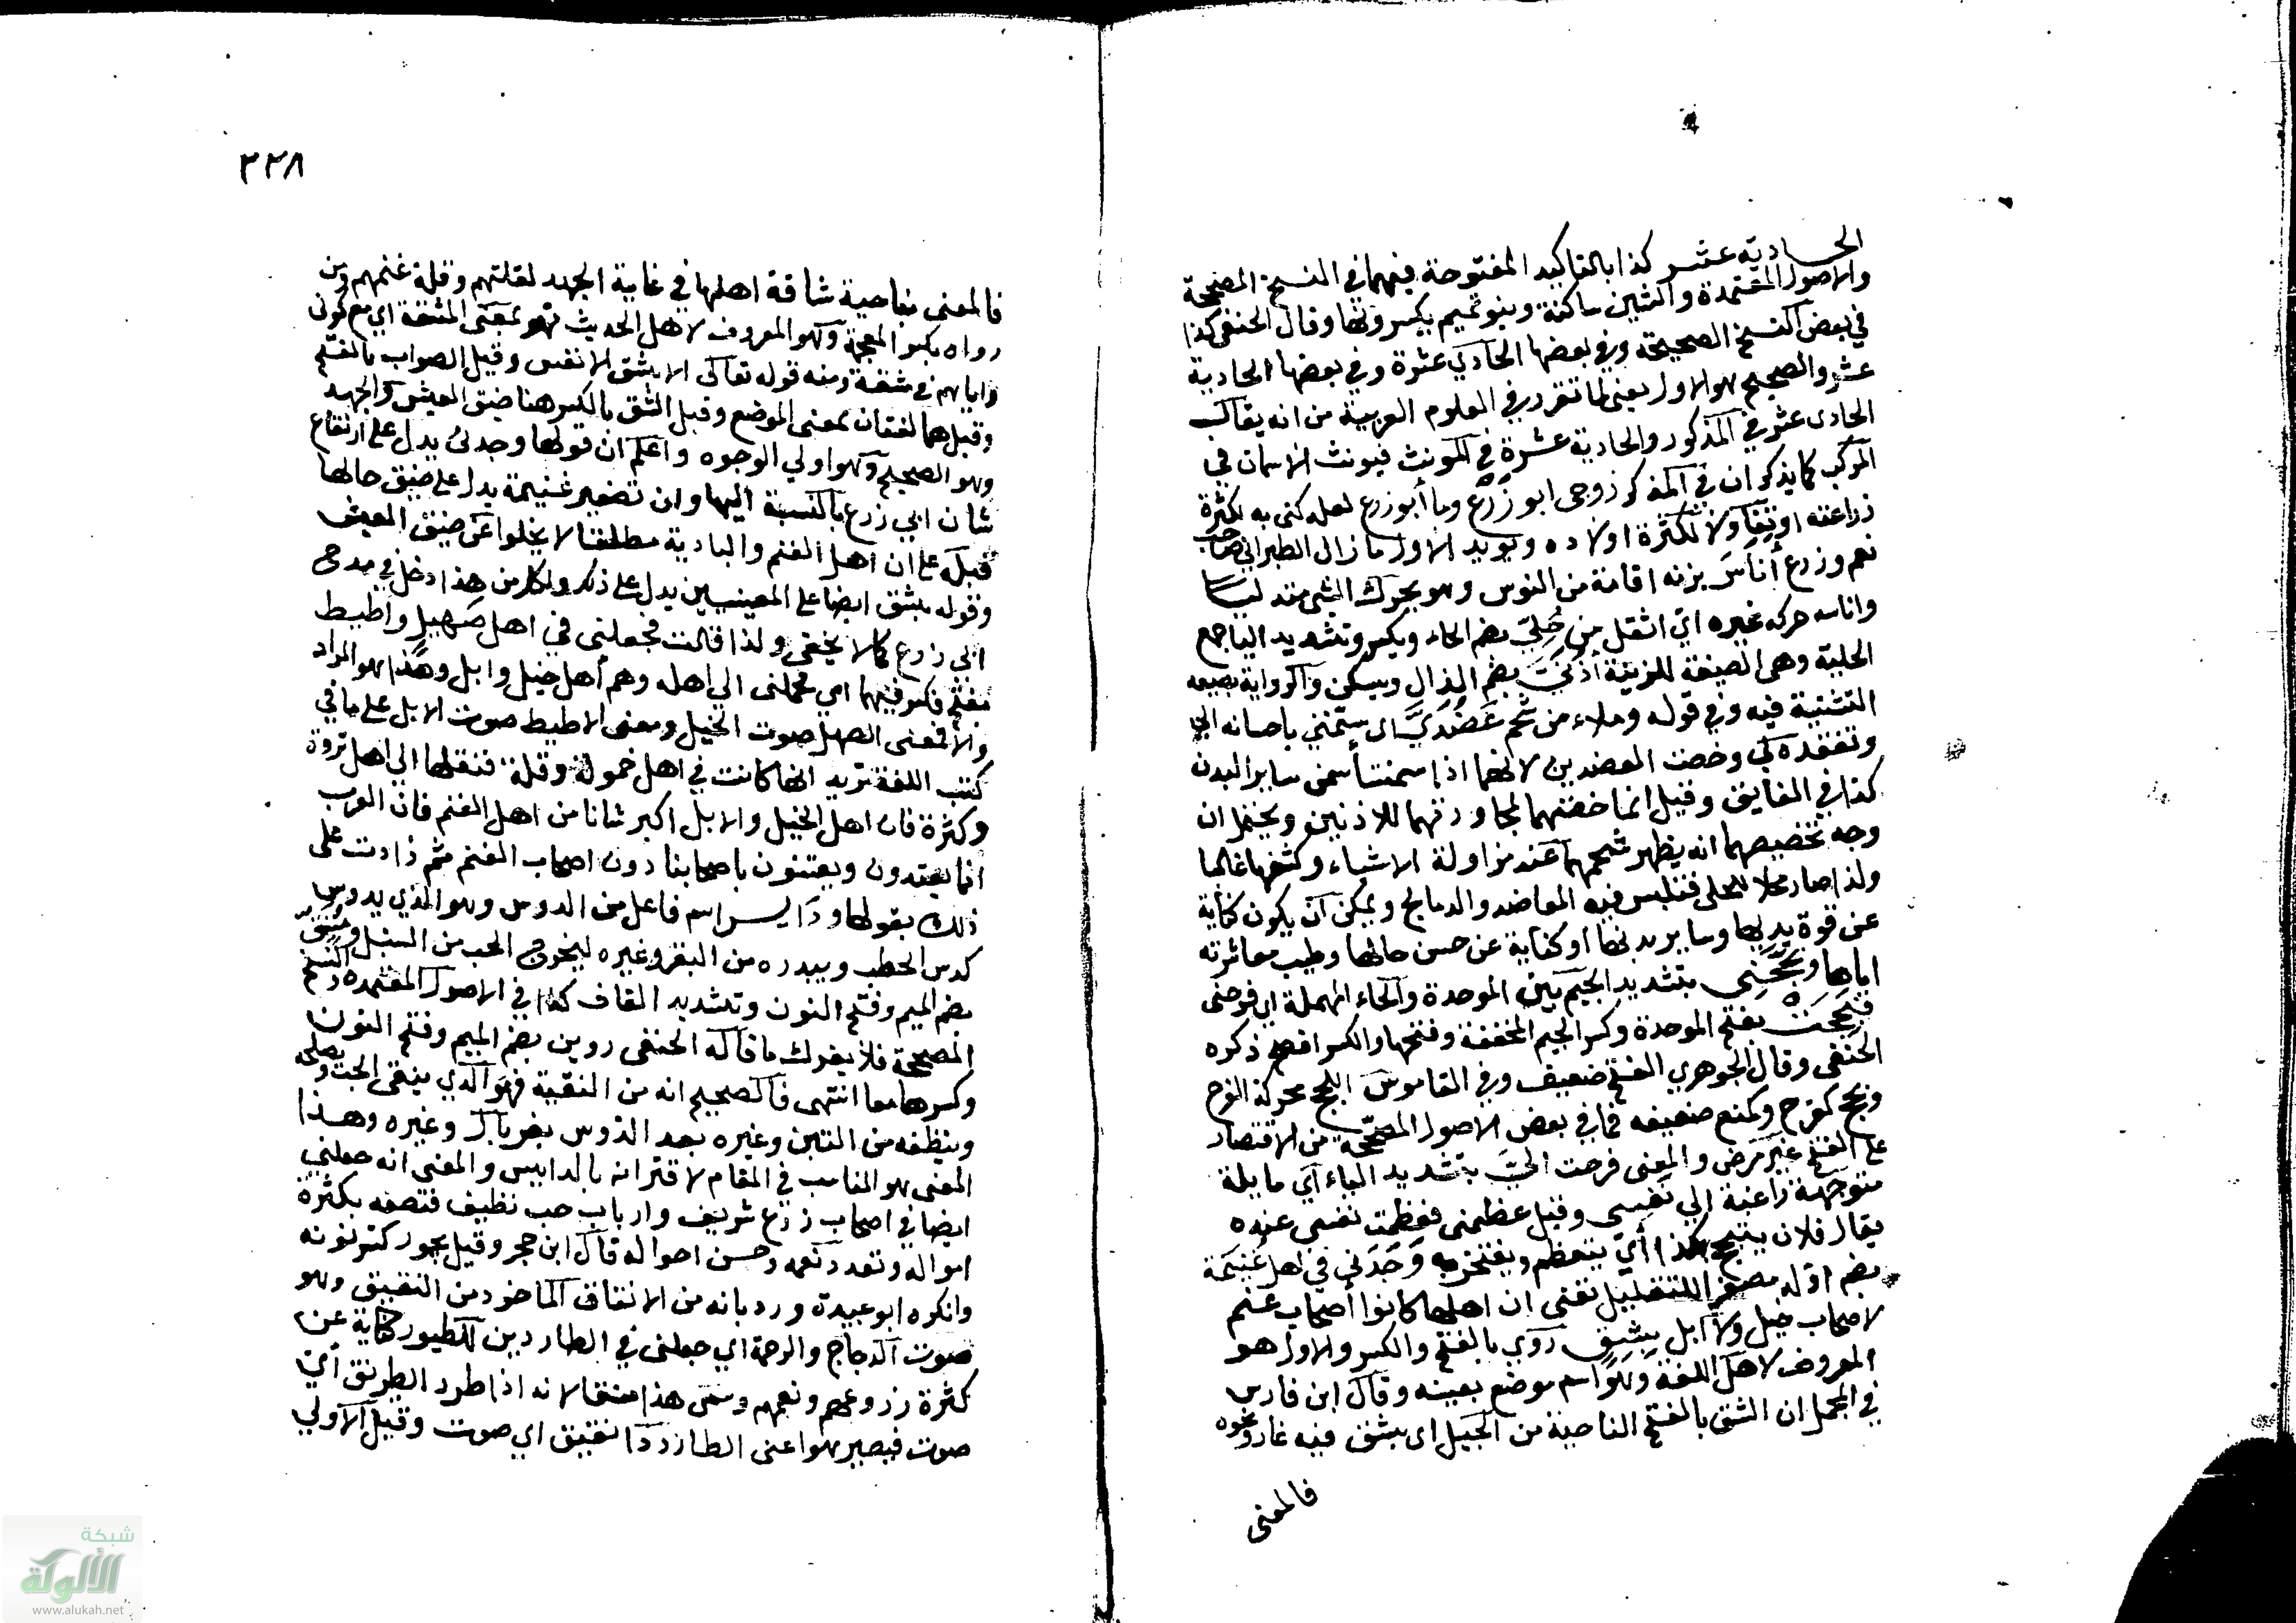 الحادية عشر كذا بالتاكيد المفتوحة فيهما في النسخ المصححة
والاصول المعتمدة والشين ساكنة وبنو تميم يكسرونها وقال الحنفي كذا
في بعض النسخ الصحيحة وفي بعضها الحادي عشرة وفي بعضها الحادية
عشر والصحيح هو الاول يعني لما تقرر في العلوم العربية من انه يقال
الحادى عشر في المذكور والحادية عشرة في المونث فيونث الاسمان في
المركب كما يذكر ان في المذكر زوجى ابو زرع وما أبو زرع لعله كنى به لكثرة
زراعته او تفاولا لكثرة اولاده ويويد الاول ما زال الطبراني صاحب
نعم وزرع أناس بزنه اقامة من النوس وهو تحرك الشى متدليا
واناسه حركه غيره اي اثقل من حُلِيّ بضم الحاء ويكسر وتشديد الياجمع
الحلية وهى الصيغة للزينة اذنيّ بضم الذال ويسكن والرواية بصيغه
التثنية فيه وفي قوله وملاء من شحم عضديّ اى سمنني باحسانه الي
وتفقده لي وخصت العضدين لانهما اذا سمنتا سمن ساير البدن
كذا في الفايق وقيل انما خصتهما لمجاورتهما للاذنين ويحتمل ان
وجه تخصيصهما انه يظهر شحمهما عند مزاولة الاشياء وكشفها غالبا
ولذا صار محلا للحلى فتلبس فيه المعاضد والدمالج ويمكن ان يكون كناية
عن قوة يديها وساير بدنها او كناية عن حسن حالها وطيب معاشرته
اياها وبجّحني بتشديد الجيم بين الموحدة والحاء المهملة اي فرحنى
فبجحت بفتح الموحدة وكسر الجيم المخففة وفتحها والكسر افصح ذكره
الحنفى وقال الجوهري الفتح ضعيف وفي القاموس البجح محركة الفرح
وبجح كفرح وكمنع ضعيفه فما في بعض الاصول المصححة من الاقتصار
على الفتح غير مرض والمعنى فرحت اليّ بتشديد الياء اي مايلة
متوجهة راغبة الي نفسي وقيل عظمنى فعظمت نفسى عنده
يقال فلان يتبجح بكذا أي يتعظم ويفتخر به وجدني في اهل غنيمة
بضم اوله مصغرا للتقليل تعنى ان اهلها كانوا أصحاب غنم
لا صحاب خيل ولا ابل بشق روي بالفتح والكسر والاول هو
المعروف لاهل اللغة وهو اسم موضع بعينه وقال ابن فارس
في المجمل ان الشق بالفتح الناحية من الجبل اى بشق فيه غار ونحوه
فالمعنى
٣٢٨
فالمعنى بناحية شاقة اهلها في غاية الجهد لقلتهم وقلة غنمهم ومن
رواه بكسر المعجمة وهو المعروف لاهل الحديث فهو بمعنى المشقة اي مع كوني
واياهم في مشقة ومنه قوله تعالى الا بشق الانفس وقيل الصواب بالفتح
وقيل هما لغتان بمعنى الموضع وقيل الشق بالكسر هنا ضيق العيش والجهد
وهو الصحيح وهو اولي الوجوه واعلم ان قولها وجدني يدل على ارتفاع
شان ابي زرع بالنسبة اليها وان تصغير غنيمة يدل على ضيق حالها
قبله على ان اهل الغنم والبادية مطلقا لا يخلوا عن ضيق العيش
وقوله بشق ايضا على المعنيين يدل على ذلك ولكل من هذا دخل في مدح
ابي زرع كما لا يخفى ولذا قالت فجعلنى في اهل صهيل واطيط
بفتح فكسر فيهما اي فحملنى الي اهله وهم أهل خيل وابل وهذا هو المراد
والا فمعنى الصهيل صوت الخيل ومعنى الاطيط صوت الابل على ما في
كتب اللغة تريد انها كانت في اهل خمولة وقلة فنقلها الي اهل ثروة
وكثرة فان اهل الخيل والابل اكبر شانا من اهل الغنم فان العرب
انما يعتدون ويعتنون باصحابنا دون اصحاب الغنم ثم زادت على
ذلك بقولها ودايس اسم فاعل من الدوس وهو الذي يدوس
كدس الحطب ويبدره من البقر وغيره ليخرج الحب من السنبل ومنقّ
بضم الميم وفتح النون وتشديد القاف كذا في الاصول المعتمده والنسخ
المصححة فلا يغرك ما قاله الحنفى روين بضم الميم وفتح النون
وكسرها معا انتهى فالصحيح انه من النقية فهو الذي ينقى الحب ويصلحه
وينظفه من التبن وغيره بعد الدوس بغربال وغيره وهذا
المعنى هو المناسب في المقام لاقترانه بالدايس والمعنى انه جعلني
ايضا في اصحاب زرع شريف وارباب حب نظيف فتصفه بكثرة
امواله وتعدد نعمه وحسن احواله قال ابن حجر وقيل يجوز كسر نونه
وانكره ابو عبيدة ورد بانه من الانقاق الماخوذ من النقيق وهو
صوت الدجاج والرحمة اي جعلنى في الطاردين للطيور كناية عن
كثرة زروعهم ونعمهم وسمى هذا منقا لانه اذا طرد الطرنق أي
صوت فيصير هو اعنى الطارد ذا نقيق اي صوت وقيل الاولي
شبكة
الألوكة
www.alukah.net